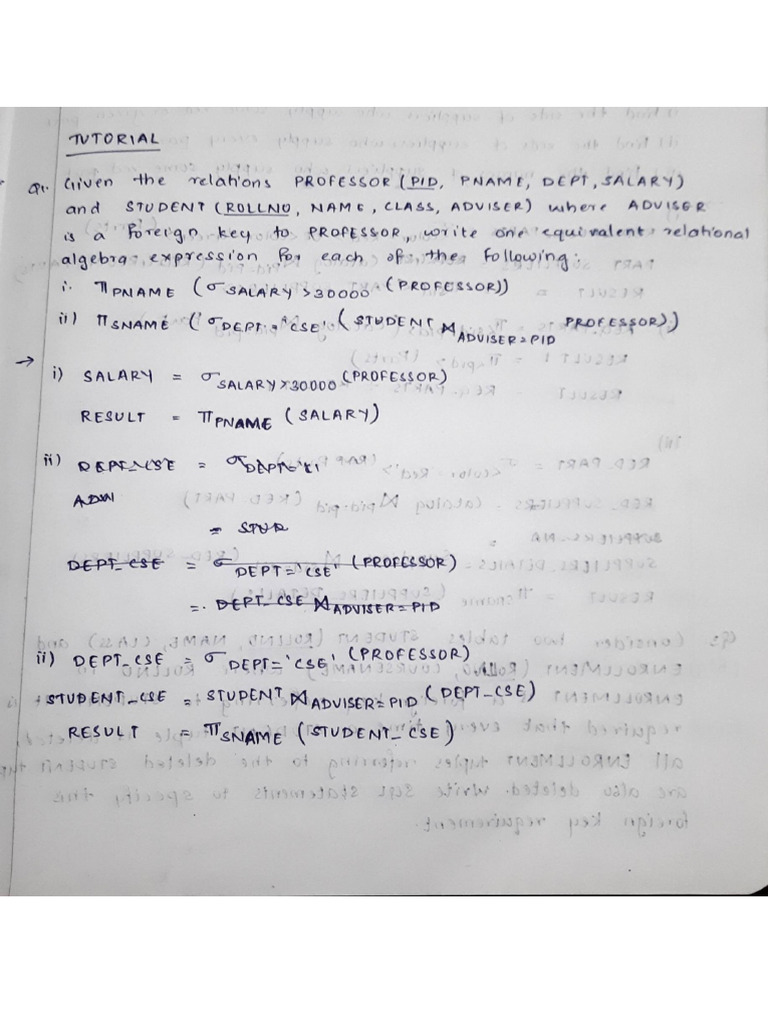 TUTORIAL
Q1. Given the relations PROFESSOR (PID, PNAME, DEPT, SALARY)
and STUDENT (ROLLNO, NAME, CLASS, ADVISER) where ADVISER
is a foreign key to PROFESSOR, write one equivalent relational
algebra expression for each of the following:
i. π PNAME (σ SALARY > 30000 (PROFESSOR))
ii) π SNAME (σ DEPT = 'CSE' (STUDENT ⋈ ADVISER = PID PROFESSOR))
→ i) SALARY = σ SALARY > 30000 (PROFESSOR)
RESULT = π PNAME (SALARY)
ii) DEPT_CSE = σ DEPT = '
= STU
DEPT_CSE = σ DEPT = 'CSE' (PROFESSOR)
= DEPT_CSE ⋈ ADVISER = PID
ii) DEPT_CSE = σ DEPT = 'CSE' (PROFESSOR)
STUDENT_CSE = STUDENT ⋈ ADVISER = PID (DEPT_CSE)
RESULT = π SNAME (STUDENT_CSE)